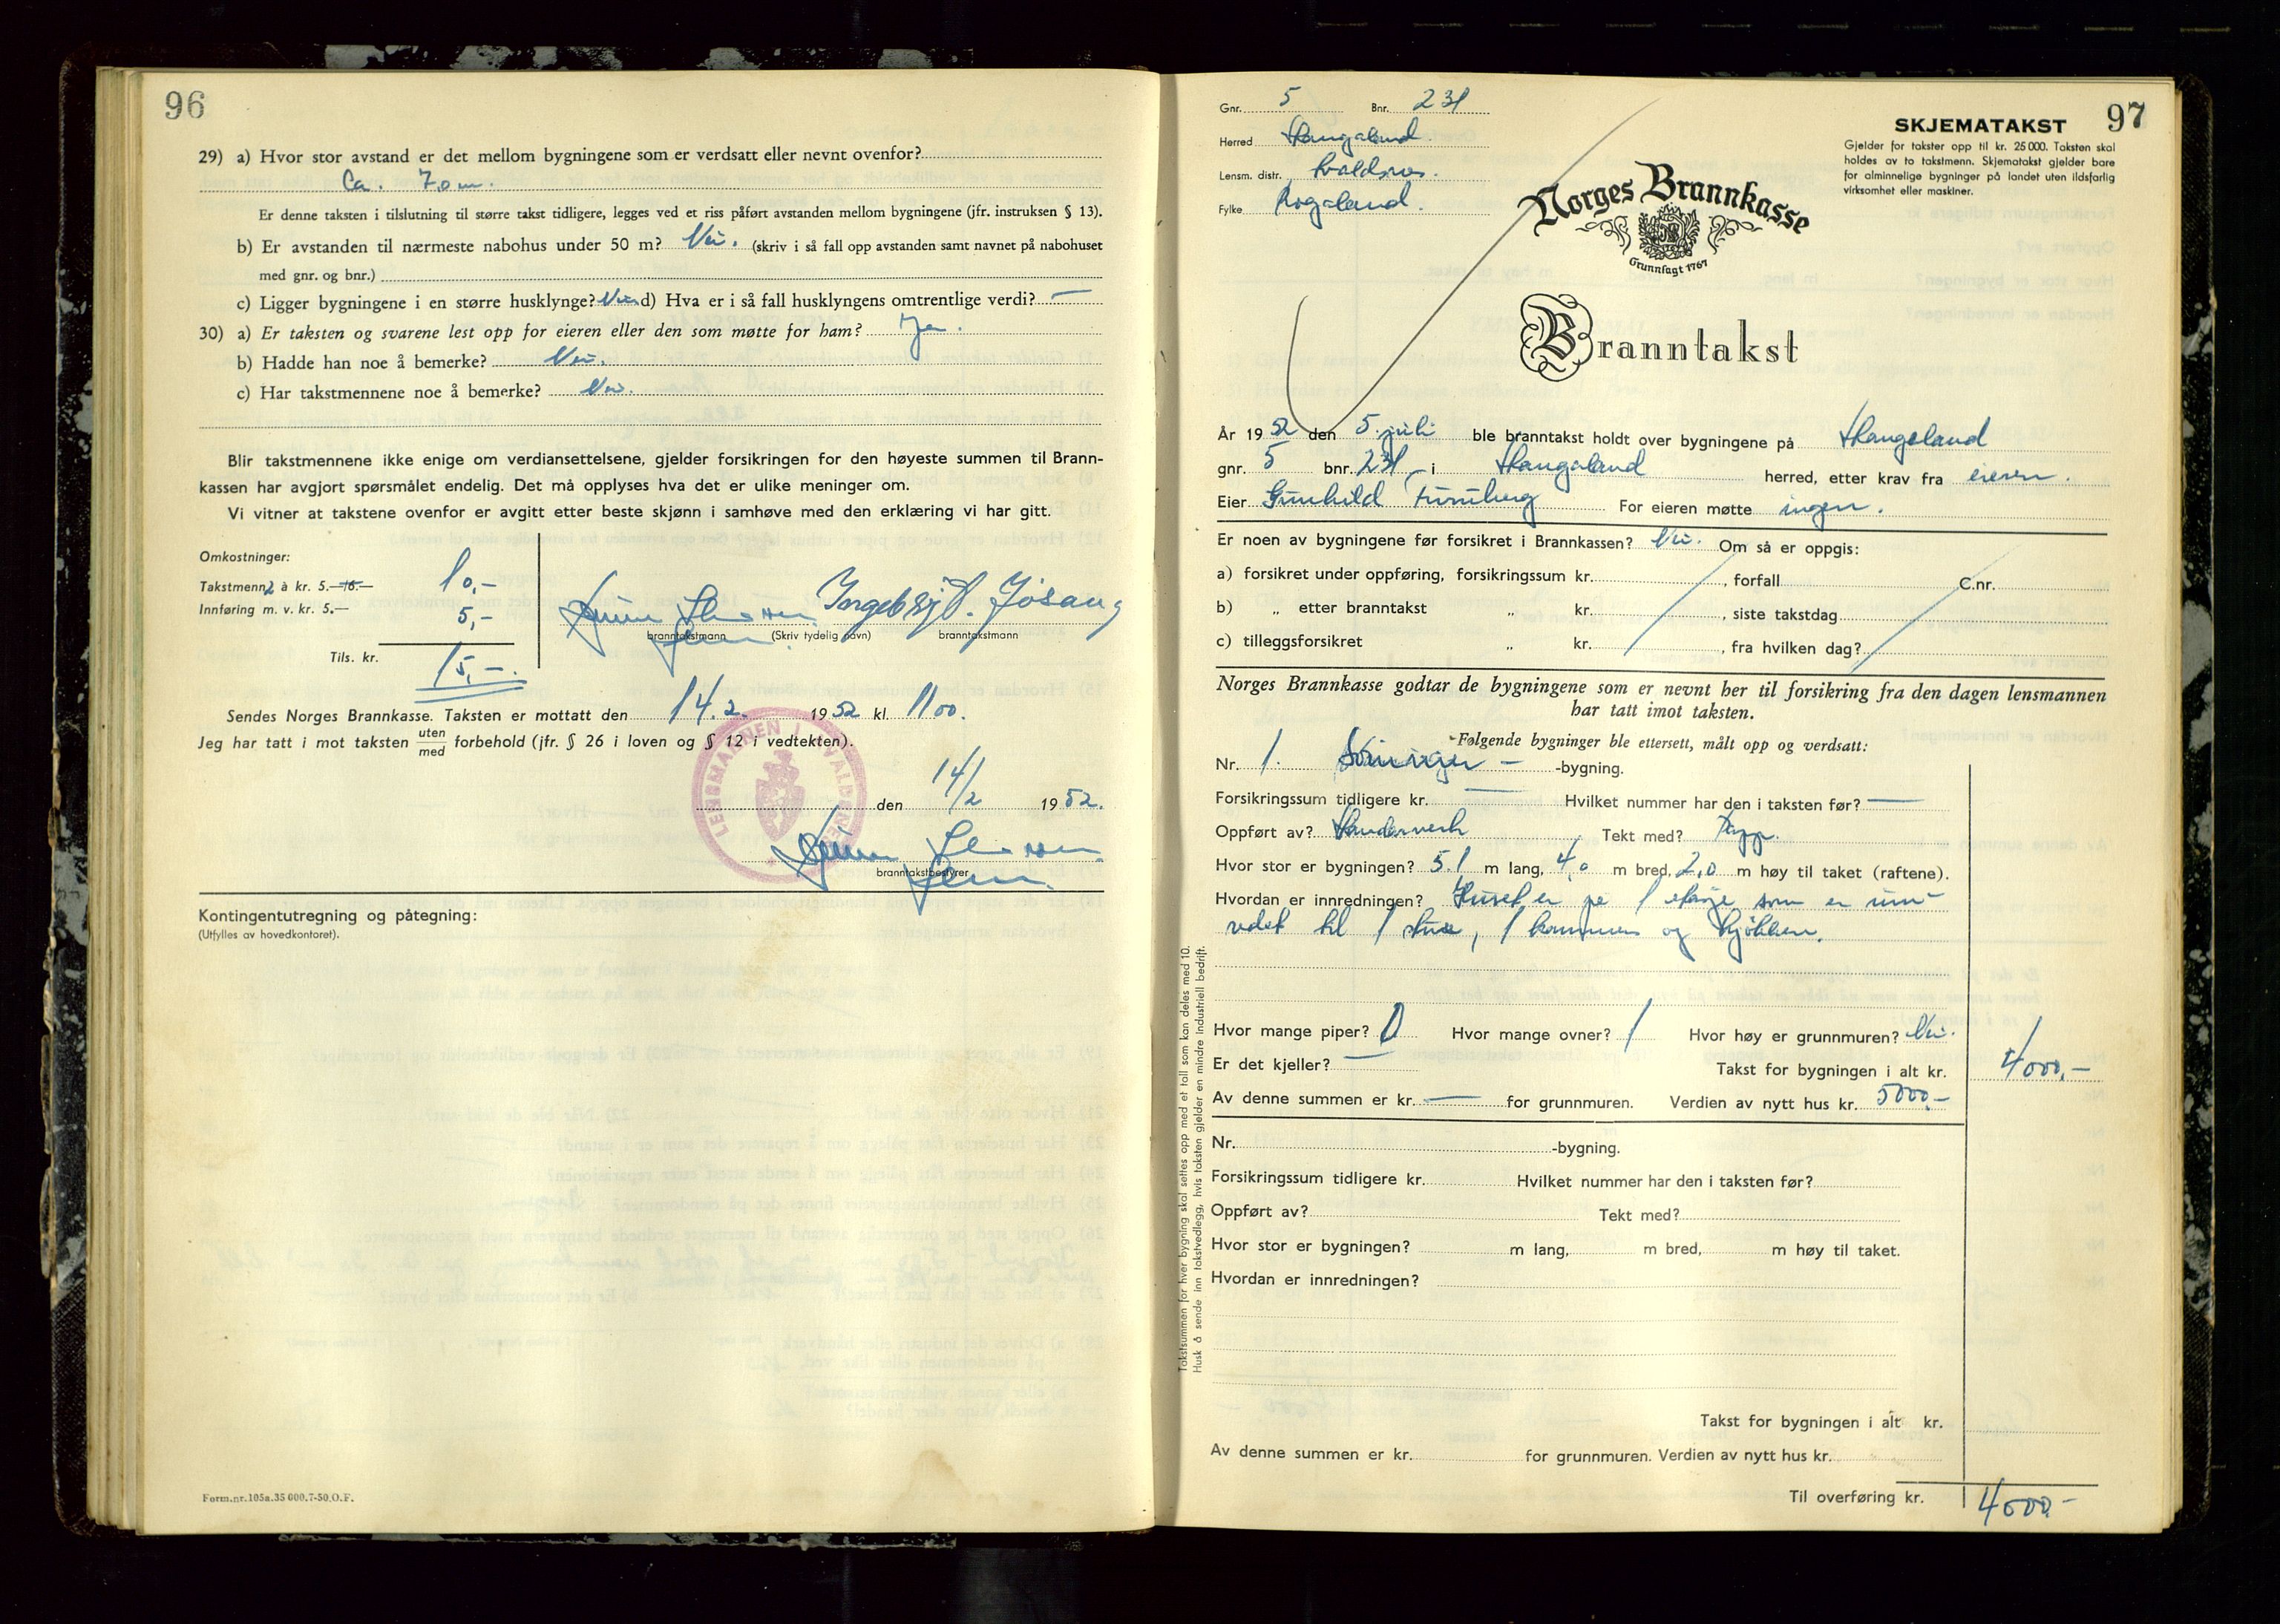 96
29) a) Hvor stor avstand er det mellom bygningene som er verdsatt eller nevnt ovenfor?
Ca. 70 m.
Er denne taksten i tilslutning til større takst tidligere, legges ved et riss påført avstanden mellom bygningene (jfr. instruksen § 13).
b) Er avstanden til nærmeste nabohus under 50 m? Nei. (skriv i så fall opp avstanden samt navnet på nabohuset
med gnr. og bnr.)
c) Ligger bygningene i en større husklynge? Nei d) Hva er i så fall husklyngens omtrentlige verdi? —
30) a) Er taksten og svarene lest opp for eieren eller den som møtte for ham? Ja.
b) Hadde han noe å bemerke? Nei.
c) Har takstmennene noe å bemerke? Nei.
Blir takstmennene ikke enige om verdiansettelsene, gjelder forsikringen for den høyeste summen til Brann-
kassen har avgjort spørsmålet endelig. Det må opplyses hva det er ulike meninger om.
Vi vitner at takstene ovenfor er avgitt etter beste skjønn i samhøve med den erklæring vi har gitt.
Omkostninger:
Takstmenn 2 à kr. 5.— 10.— 10,-
Innføring m. v. kr. 5.— 5,-
Tils. kr. 15,-.
Ingebrigt. Jösang
branntakstmann (Skriv tydelig navn) branntakstmann
Sendes Norges Brannkasse. Taksten er mottatt den 14.2. 1952 kl. 1100.
Jeg har tatt i mot taksten uten/med forbehold (jfr. § 26 i loven og § 12 i vedtekten).
LENSMANNEN I AVALDSNES
den 14/2 1952.
branntakstbestyrer
Kontingentutregning og påtegning:
(Utfylles av hovedkontoret).
Form.nr.105a.35 000.7-50.O.F.
97
Gnr. 5 Bnr. 231
Herred Haugaland.
Lensm. distr. Avaldsnes.
Fylke Rogaland.
SKJEMATAKST
Gjelder for takster opp til kr. 25 000. Taksten skal
holdes av to takstmenn. Skjematakst gjelder bare
for alminnelige bygninger på landet uten ildsfarlig
virksomhet eller maskiner.
Norges Brannkasse
Grunnlagt 1767
Branntakst
År 1952 den 5. juli ble branntakst holdt over bygningene på Haugaland
gnr. 5 bnr. 231 i Haugaland herred, etter krav fra eieren.
Eier Gunhild Furuberg For eieren møtte ingen.
Er noen av bygningene før forsikret i Brannkassen? Nei. Om så er oppgis:
a) forsikret under oppføring, forsikringssum kr. , forfall C.nr.
b) „ etter branntakst „ kr. , siste takstdag
c) tilleggsforsikret „ kr. , fra hvilken dag?
Norges Brannkasse godtar de bygningene som er nevnt her til forsikring fra den dagen lensmannen
har tatt imot taksten.
Følgende bygninger ble ettersett, målt opp og verdsatt:
Nr. 1. -bygning.
Forsikringssum tidligere kr. — Hvilket nummer har den i taksten før? —
Oppført av? Handarverk Tekt med? Papp.
Hvor stor er bygningen? 5.1 m lang, 4,0 m bred, 2,0 m høy til taket (raftene).
Hordan er innredningen? Huset er på 1 etasje som er inn-
redet til 1 stue, 1 kammers og kjökken.
Hvor mange piper? 0 Hvor mange ovner? 1 Hvor høy er grunnmuren? Nei.
Er det kjeller? — Takst for bygningen i alt kr. 4000.-
Av denne summen er kr. — for grunnmuren. Verdien av nytt hus kr. 5000.-
Nr. -bygning.
Forsikringssum tidligere kr. Hvilket nummer har den i taksten før?
Oppført av? Tekt med?
Hvor stor er bygningen? m lang, m bred, m høy til taket.
Hvordan er innredningen?
Takst for bygningen i alt kr.
Av denne summen er kr. for grunnmuren. Verdien av nytt hus kr.
Til overføring kr. 4000.-
Takstsummen for hver bygning skal settes opp med et tall som kan deles med 10.
Husk å sende inn takstvedlegg, hvis taksten gjelder en mindre industriell bedrift.